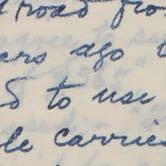 road fro
ers ago
to use
le carrie